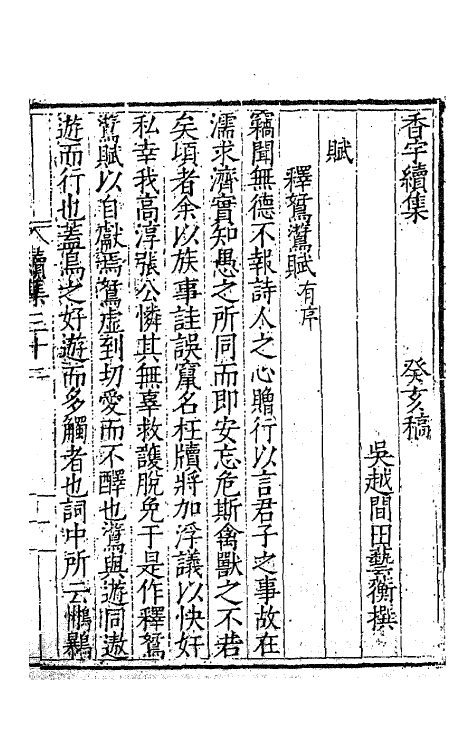 香宇續集　癸亥稿
吳越間田藝蘅撰
賦
釋鴛鷟賦有序
竊聞無德不報詩人之心贈行以言君子之事故在
濡求濟實知愚之所同而即安忘危斯禽獸之不若
矣頃者余以族事詿誤竄名枉牘將加浮議以快奸
私幸我高淳張公憐其無辜救護脫免于是作釋鴛
鷟賦以自獻焉鴛虛到切愛而不醳也鷟與遊同遨
遊而行也蓋鳥之好遊而多觸者也詞中所云
續集三十二